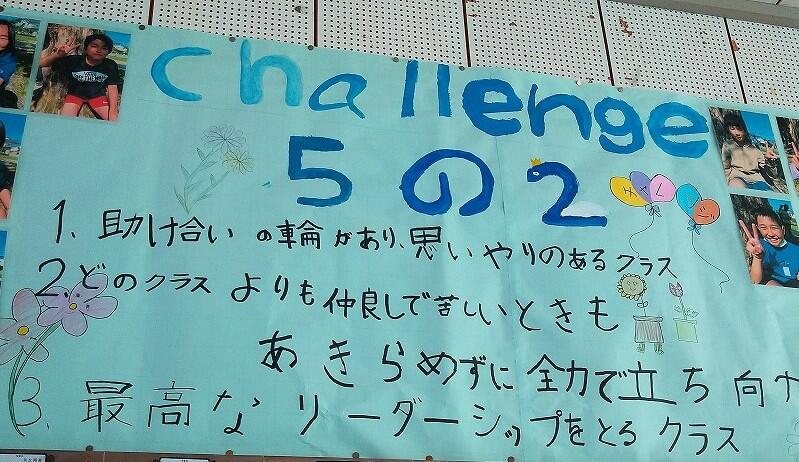 challenge
5の2
1、助け合いの輪があり、思いやりのあるクラス
2どのクラスよりも仲良しで苦しいときも
あきらめずに全力で立ち向か
3、最高なリーダーシップをとるクラス